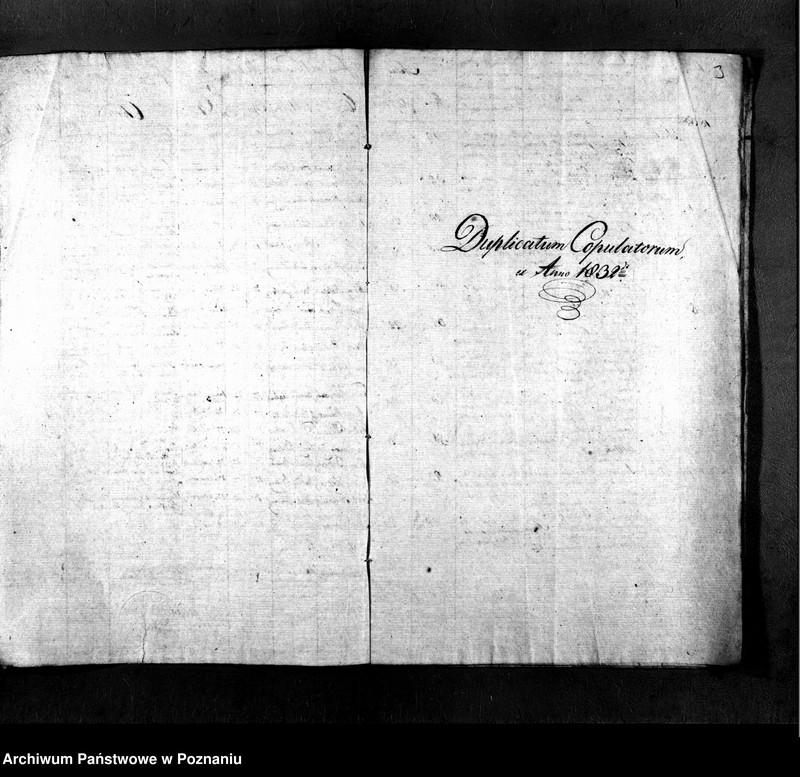 3
Duplicatum Copulatorum
Anno 1832
Archiwum Państwowe w Poznaniu